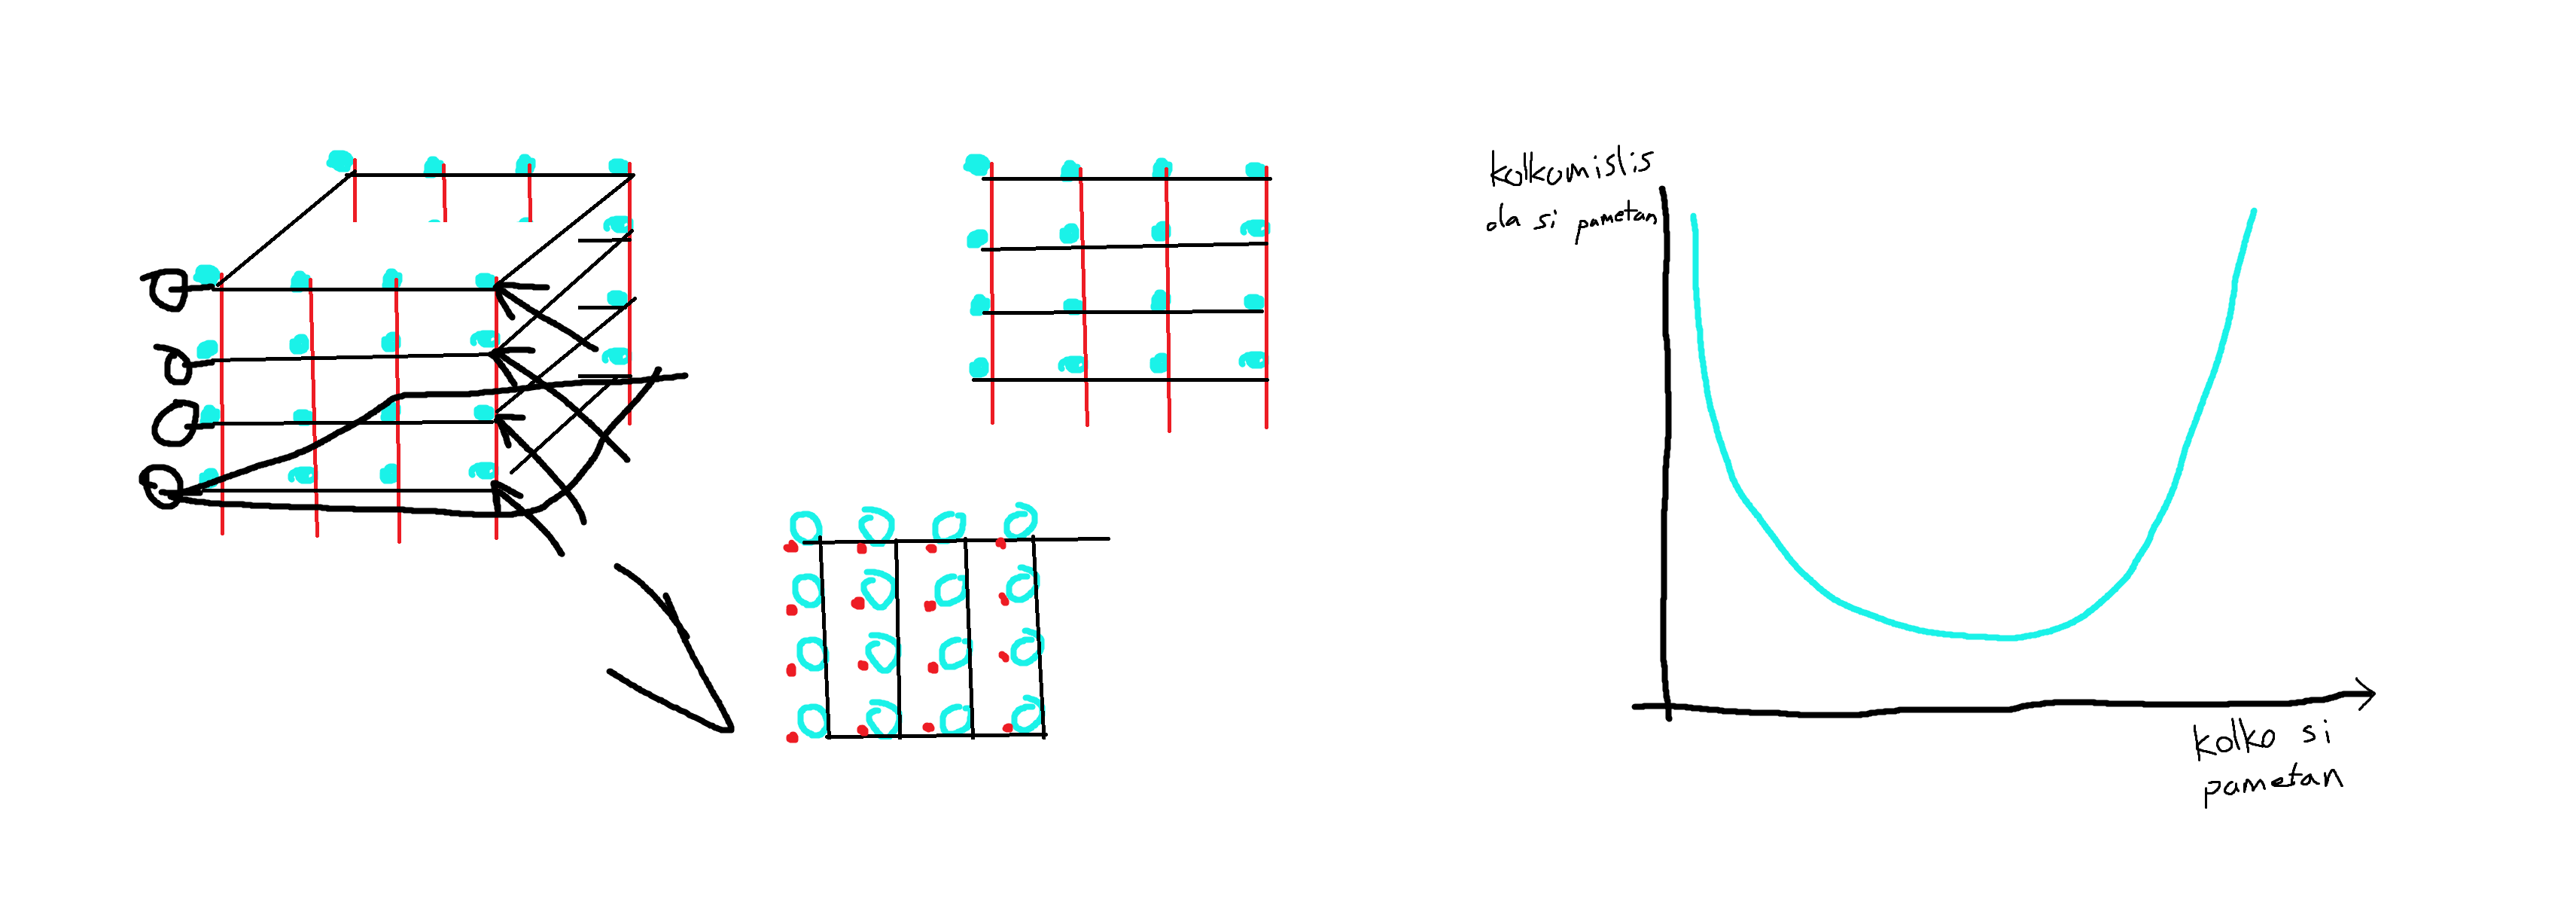 kolkomislis
da si pametan
kolko si
pametan